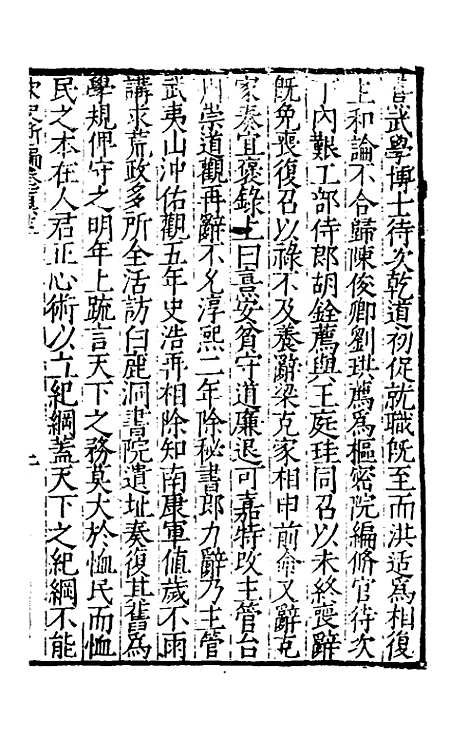 書武學博士待次乾道初促就職旣至而洪适爲相復
主和論不合歸陳俊卿劉珙薦爲樞密院編脩官待次
丁內艱工部侍郎胡銓薦與王庭珪同召以未終喪辭
旣免喪復召以祿不及養辭梁克家相申前命又辭克
家奏宜褒錄上曰熹安貧守道廉退可嘉特改主管台
州崇道觀再辭不允淳熙二年除秘書郎力辭乃主管
武夷山沖佑觀五年史浩再相除知南康軍値歲不雨
講求荒政多所全活訪白鹿洞書院遺址奏復其舊爲
學規俾守之明年上疏言天下之務莫大於恤民而恤
民之本在人君正心術以立紀綱蓋天下之紀綱不能
宋史新編卷